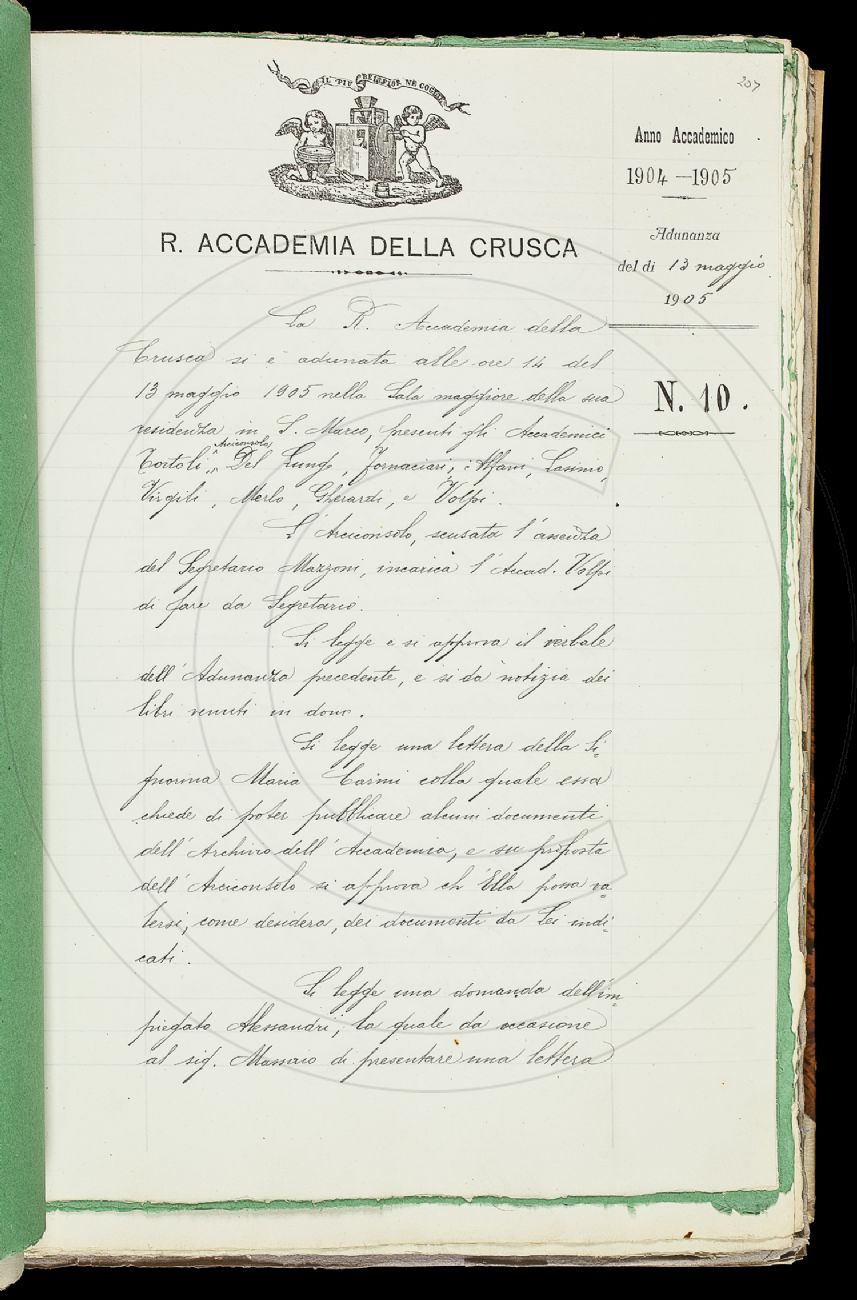 207
IL PIÙ BEL FIOR NE COGLIE
Anno Accademico
1904-1905
Adunanza
del dì 13 maggio
1905
N. 10.
R. ACCADEMIA DELLA CRUSCA
La R. Accademia della
Crusca si è adunata alle ore 14 del
13 maggio 1905 nella Sala maggiore della sua
residenza in S. Marco, presenti gli Accademici
Arciconsolo
Tortoli, Del Lungo, Fornaciari, Alfani, Lasinio,
Virgili, Merlo, Gherardi, e Volpi.
L'Arciconsolo, scusata l'assenza
del Segretario Mazzoni, incarica l'Accad. Volpi
di fare da Segretario.
Si legge e si approva il verbale
dell'Adunanza precedente, e si dà notizia dei
libri venuti in dono.
Si legge una lettera della Si=
gnorina Maria Carini colla quale essa
chiede di poter pubblicare alcuni documenti
dell'Archivio dell'Accademia, e su proposta
dell'Arciconsolo si approva ch'Ella possa va=
lersi, come desidera, dei documenti da Lei indi=
cati.
Si legge una domanda dell'im=
piegato Alessandri, la quale dà occasione
al sig. Massaio di presentare una lettera